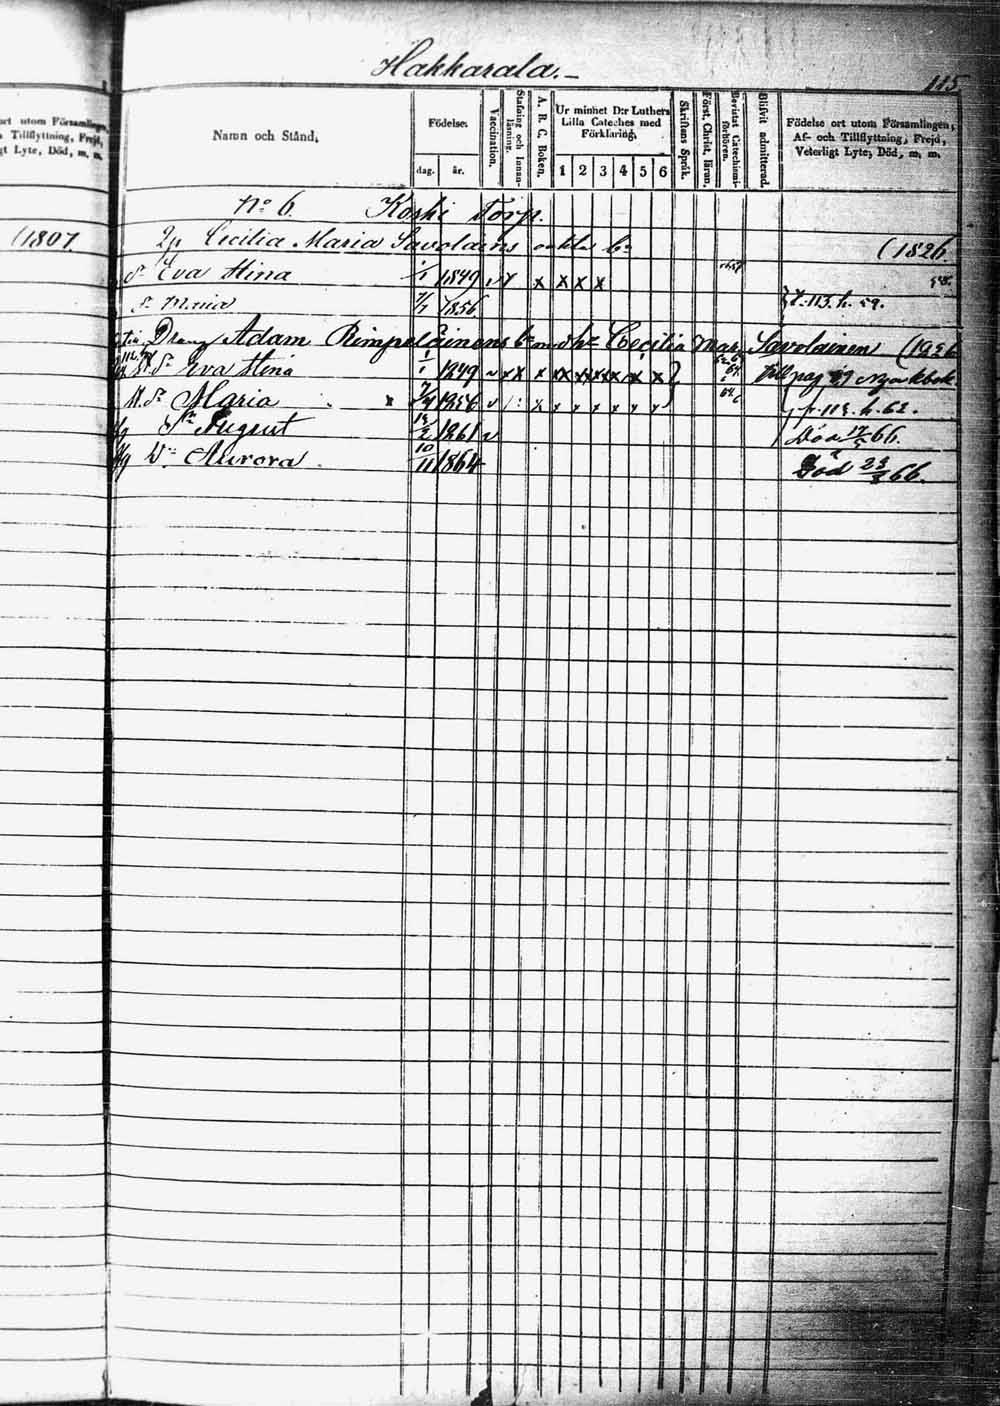 Hakkarala.-
115
ort utom Församlingen,
Tillflyttning, Frejd,
gt Lyte, Död, m, m.
(1807
Namn och Stånd,
Födelse.
dag. år.
Vaccination.
Stafning och Innan-läsning.
A. B. C. Boken.
Ur minnet D:r Luthers
Lilla Cateches med
Förklaring,
1 2 3 4 5 6
Skriftens Språk.
Först. Christ. läran.
Bevistat Catechismi-förhören.
Blifvit admitterad.
Födelse ort utom Församlingen,
Af- och Tillflyttning, Frejd,
Veterligt Lyte, Död, m. m.
No 6. Koski Torp.
Cecilia Maria Savolains (1826.
Eva Stina 1/1 1849 x x x x
Maria 1856 f. 113. h. 59.
Dreng Adam Rimpeläinens Cecilia Mar. Savolainen
Eva Stina 1/1 1849 x x x x x x x x x Till pag
Maria 1856 x x x x x x x
August 1861 Död 66.
Aurora 10/11 1864 Död 66.